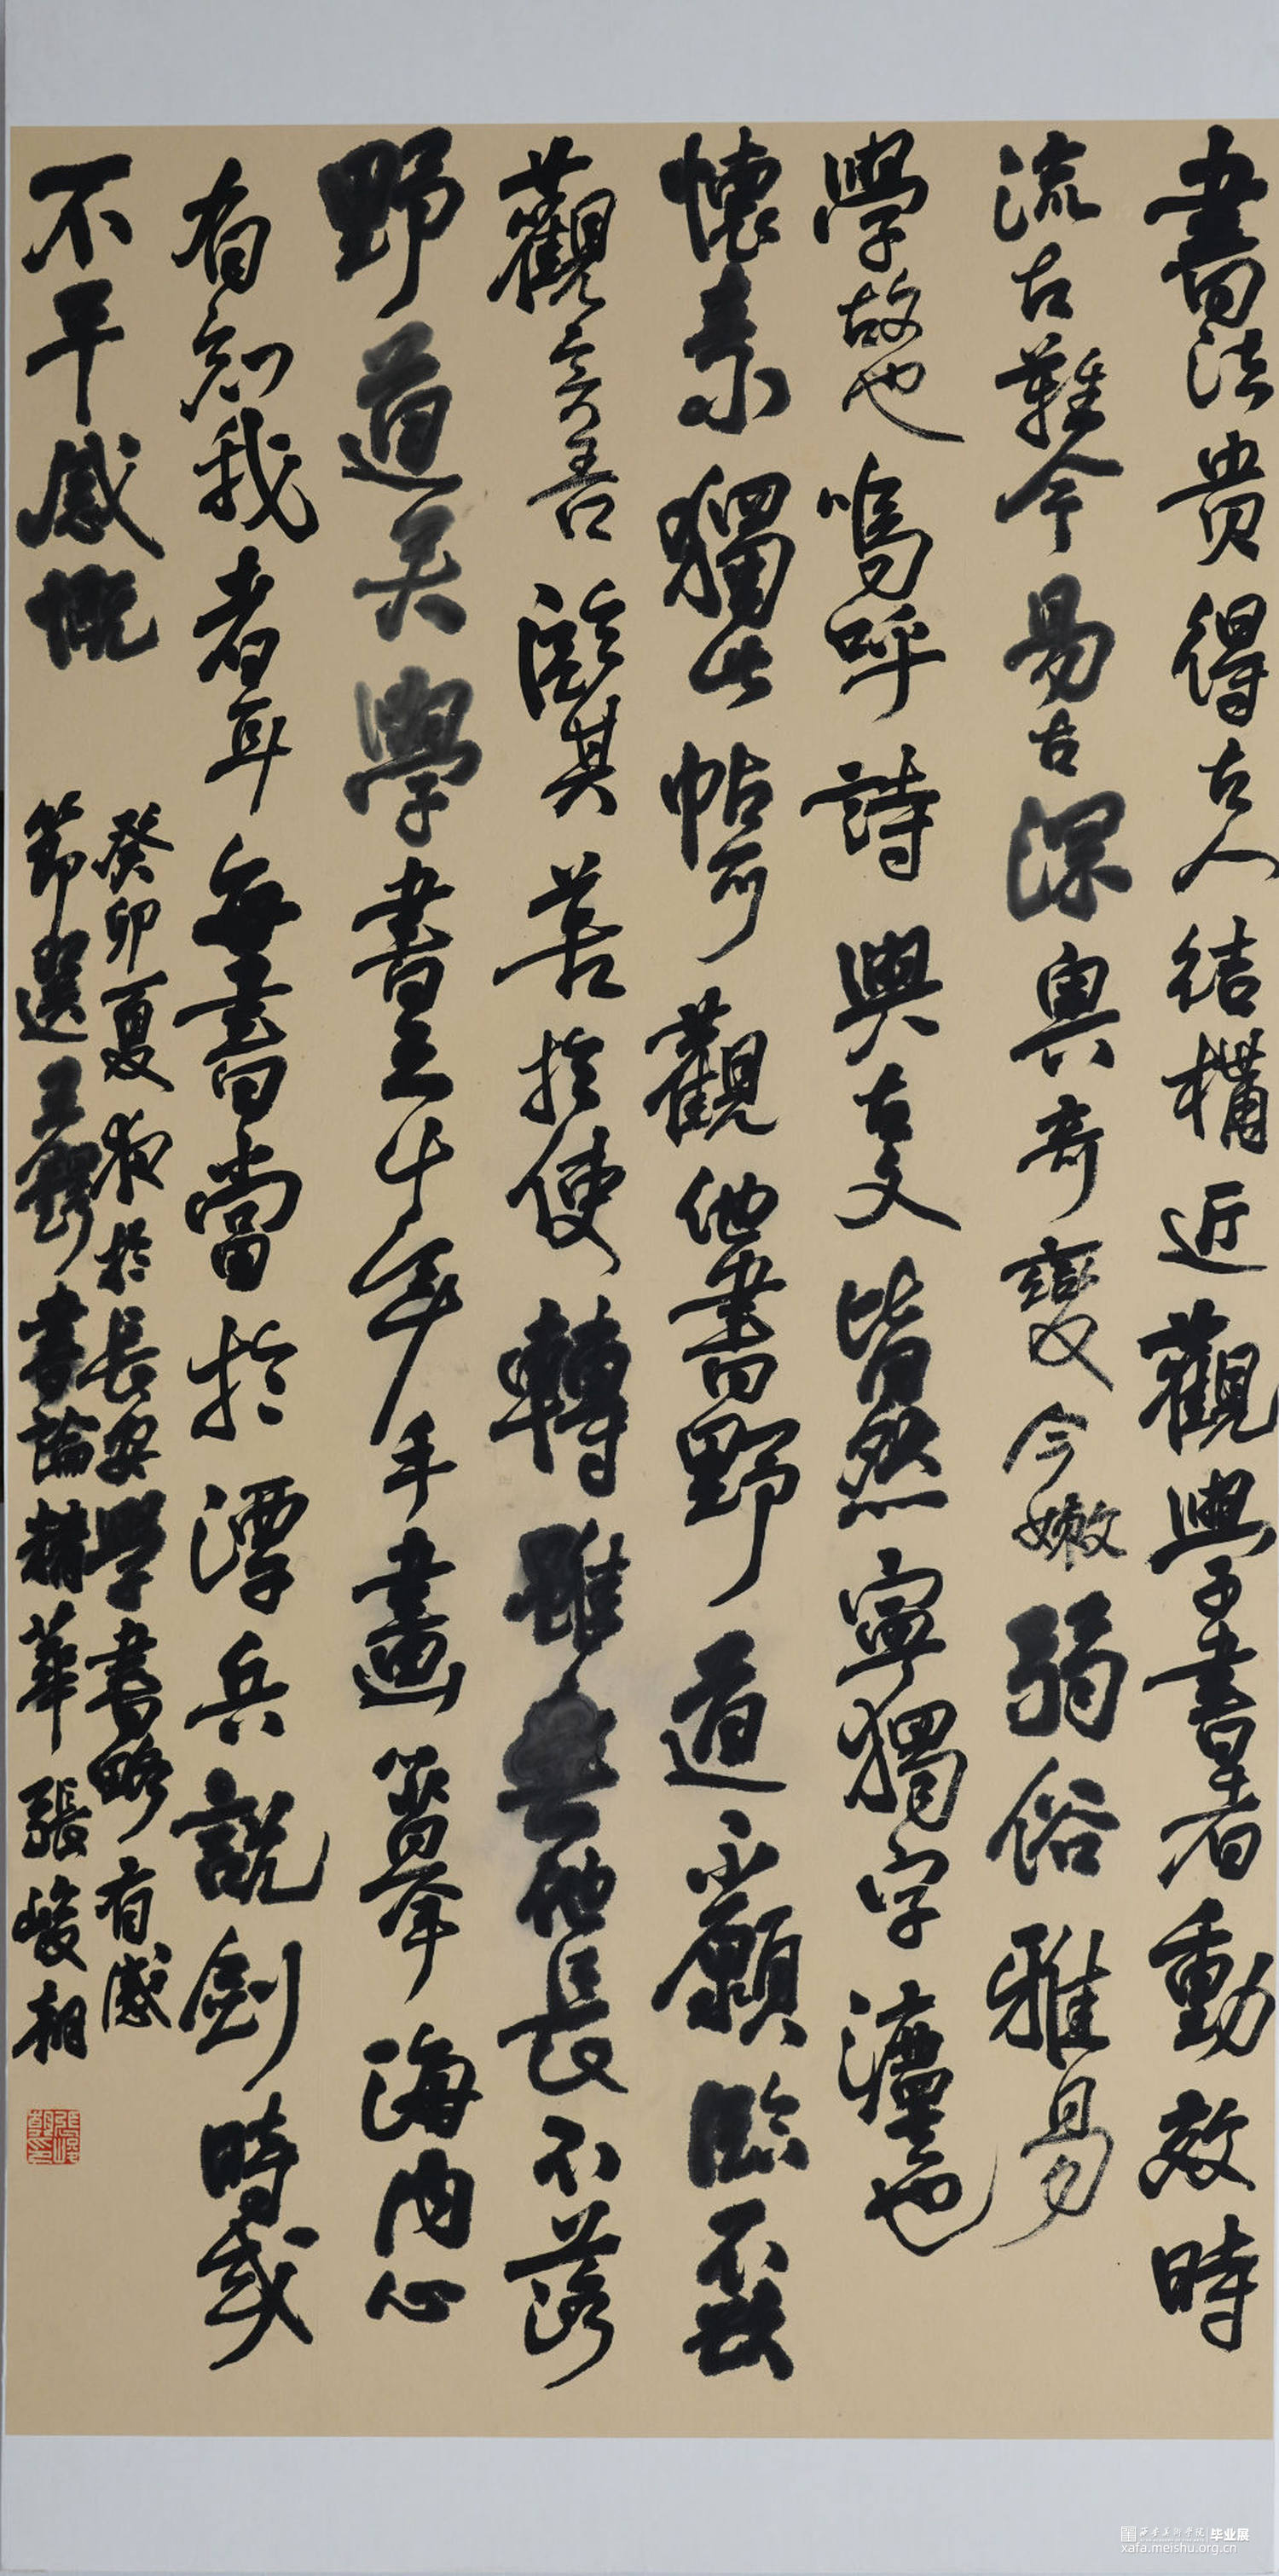 書法貴得古人結構近觀學書者動效時
流古難今易古深奧奇變今嫩弱俗雅易
學故也嗚呼詩與古文皆然寧獨字法也
懷素獨此帖可觀他書野道不願臨不數
觀亦善臨其苦於使轉雖無他長不落
野道矣學書五十年手畫篆舉海內必
有知我者耳每書當於潭兵說劍時或
不平感慨
癸卯夏夜於長安學書略有感
節選王鐸書論精華張峻朝
西安美術學院 毕业展
xafa.meishu.org.cn